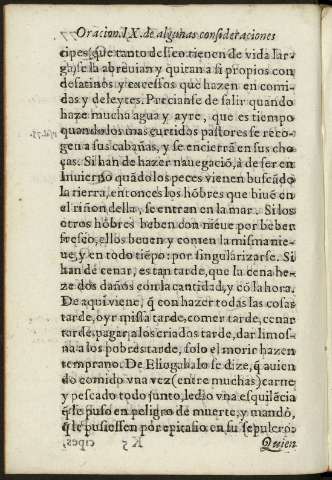 Oracion.IX.de algunas consideraciones
cipes, que tanto desseo tienen de vida lar-
ga, se la abreuian y quitan a si propios con
desatinos y excessos que hazen en comi-
das y deleytes. Precianse de salir quando
haze mucha agua y ayre, que es tiempo
quando los mas curtidos pastores se reco-
gen a sus cabañas, y se encierrã en sus cho-
ças. Si han de hazer nauegació, à de ser en
inuierno quãdo los peces vienen buscãdo
la tierra, entonces los hõbres que biuẽ en
el riñon della, se entran en la mar. Si los
otros hõbres beben don nieue por beber
fresco, ellos beuen y comen la misma nie-
ue, y en todo tiẽpo: por singularizarse. Si
han de cenar, es tan tarde, que la cena ha-
ze dos daños con la cantidad, y cõ la hora.
De aqui viene, q̃ con hazer todas las cosas
tarde, oyr missa tarde, comer tarde, cenar
tarde, pagar a los criados tarde, dar limos-
na a los pobres tarde, solo el morir hazen
temprano. De Eliogabalo se dize, q̃ auien
do comido vna vez (entre muchas) carne
y pescado todo junto, le dio vna esquilẽcia
q̃ le puso en peligro de muerte, y mandó,
q̃ le pusiessen por epitafio en su sepulcro:
Quien